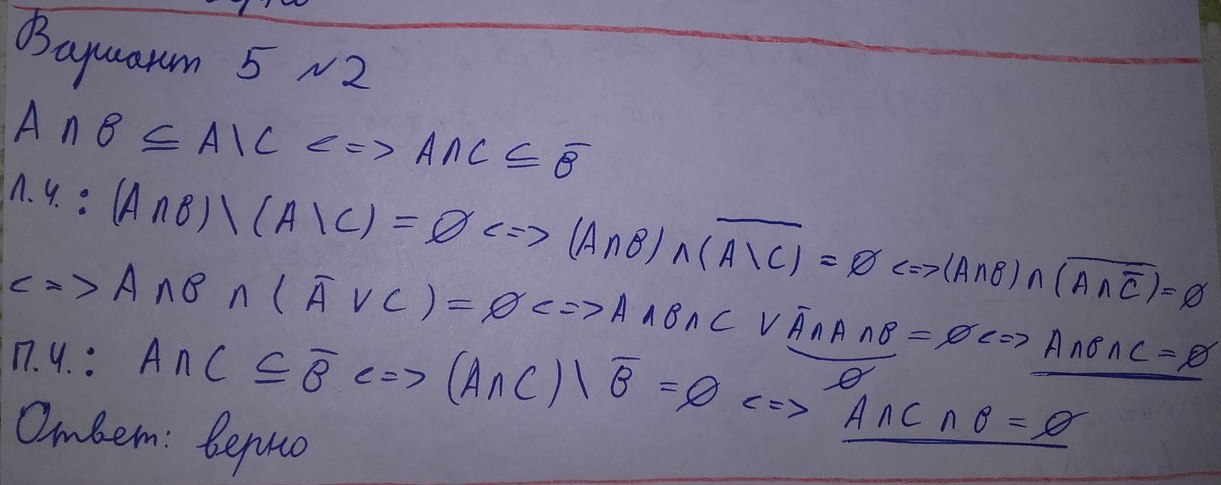 Вариант 5 №2
A ∩ B ⊆ A \ C <=> A ∩ C ⊆ B̅
Л.Ч.: (A ∩ B) \ (A \ C) = ∅ <=> (A ∩ B) ∩ (A̅ ̅\̅ ̅C̅) = ∅ <=> (A ∩ B) ∩ (A̅ ̅∩̅ ̅C̅̅) = ∅
<=> A ∩ B ∩ (A̅ ∪ C) = ∅ <=> A ∩ B ∩ C ∪ A̅ ∩ A ∩ B = ∅ <=> A ∩ B ∩ C = ∅
∅
П.Ч.: A ∩ C ⊆ B̅ <=> (A ∩ C) \ B̅ = ∅ <=> A ∩ C ∩ B = ∅
Ответ: верно